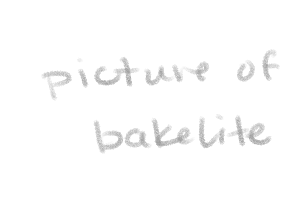 picture of
bakelite